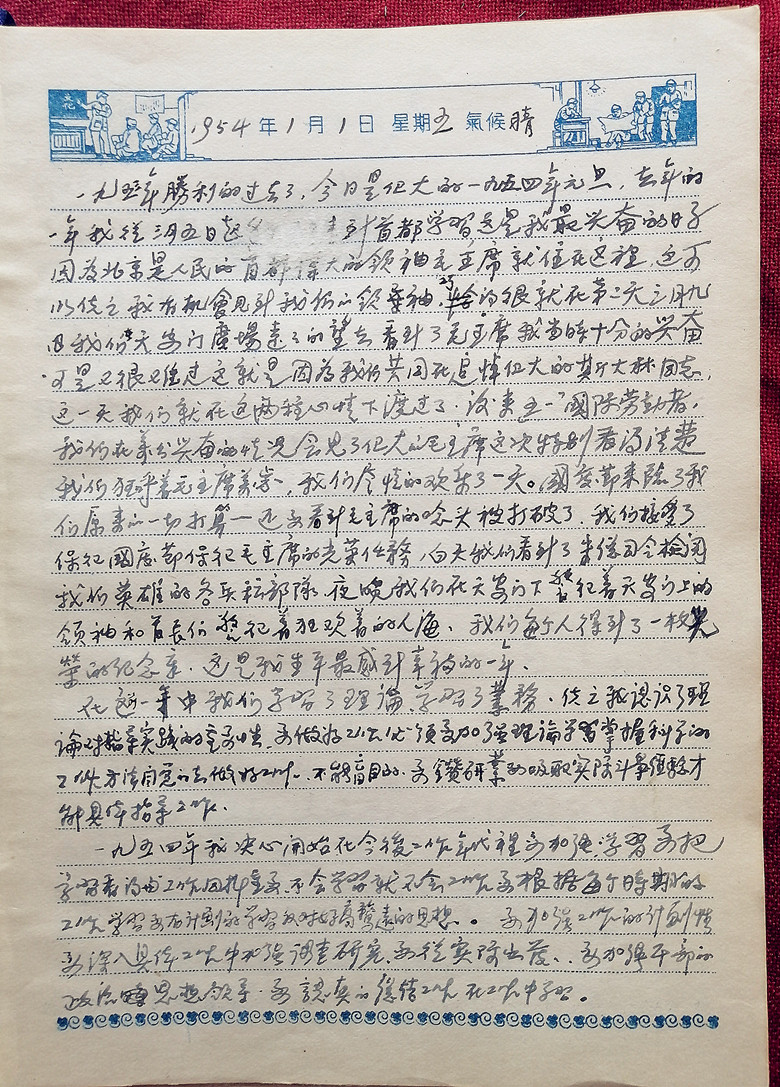 1954年1月1日 星期五 氣候晴
一九五三年勝利的过去了，今日是伟大的一九五四年元旦，去年的
一年我从三月五日起 到首都学習，这是我最兴奋的日子
因為北京是人民的首都伟大的領袖毛主席就住在这裡，这可
以使之我有机會見到我们的領袖，的很就在第二天三月九
日我们天安门廣場 的望去看到了毛主席我当時十分的兴奋
可是又很难过这就是因為我们共同在追悼伟大的斯大林同志，
这一天我们就在这两種心情下渡过了。後来五一國际劳动者，
我们在万分兴奋的情况会見了伟大的毛主席这次特别看得清楚
我们狂呼着毛主席万岁，我们尽情的欢乐了一天。國庆節来臨了我
们原来的一切打算 还要看到毛主席的念头被打破了，我们接受了
保衛國庆節保衛毛主席的光荣任務，白天我们看到了朱總司令檢閱
我们英雄的各兵种部隊，夜晚我们在天安门下警衛着天安门上的
領袖和首長们警衛着狂欢着的人海、我们每个人得到了一枚光
榮的纪念章，这是我生平最感到幸福的一年。
在这一年中我们学習了理論，学習了業務，使之我認识了理
論对指导实践的重要性，要做好工作必須要加强理論学習掌握科学的
工作方法自觉的去做好工作。不能盲目的，要鑽研業务吸取实际斗争经验才
能具体指导工作。
一九五四年我决心開始在今後工作年代裡要加强学習要把
学習看得由工作同样重要，不会学習就不会工作要根据每个時期的
工作学習要有计划的学習反对好高鶩遠的思想。要加强工作的计划性
要深入具体工作中加强调查研究，要從实际出发，要加强干部的
政治思想領导，要認真的總结工作在工作中学習。